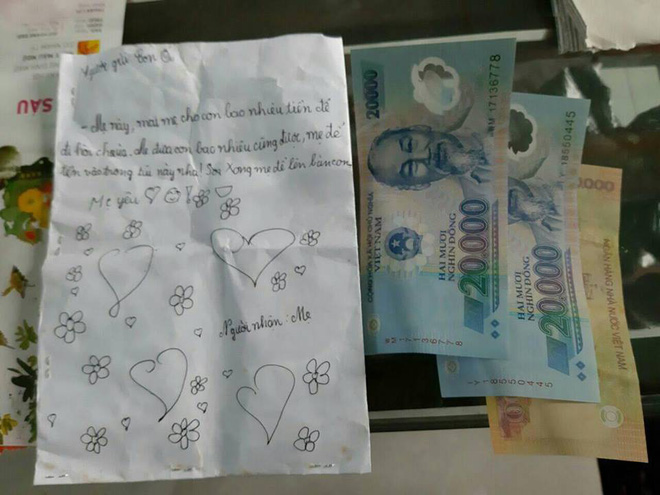 Người gửi Con
- Mẹ này, mai mẹ cho con bao nhiêu tiền để
đi hội chợ. Mẹ đưa con bao nhiêu cũng được, mẹ để
tiền vào trong túi này nha! Xong mẹ để lên bàn con
Mẹ yêu
Người nhận: Mẹ
SAU
20000
17136778
CỘNG HÒA XÃ HỘI CHỦ NGHĨA
VIỆT NAM
HAI MƯƠI
NGHÌN ĐỒNG
20.000
17136778
18550445
HAI MƯƠI
NGHÌN ĐỒNG
20.000
18550445
NGÂN HÀNG NHÀ NƯỚC VIỆT NAM